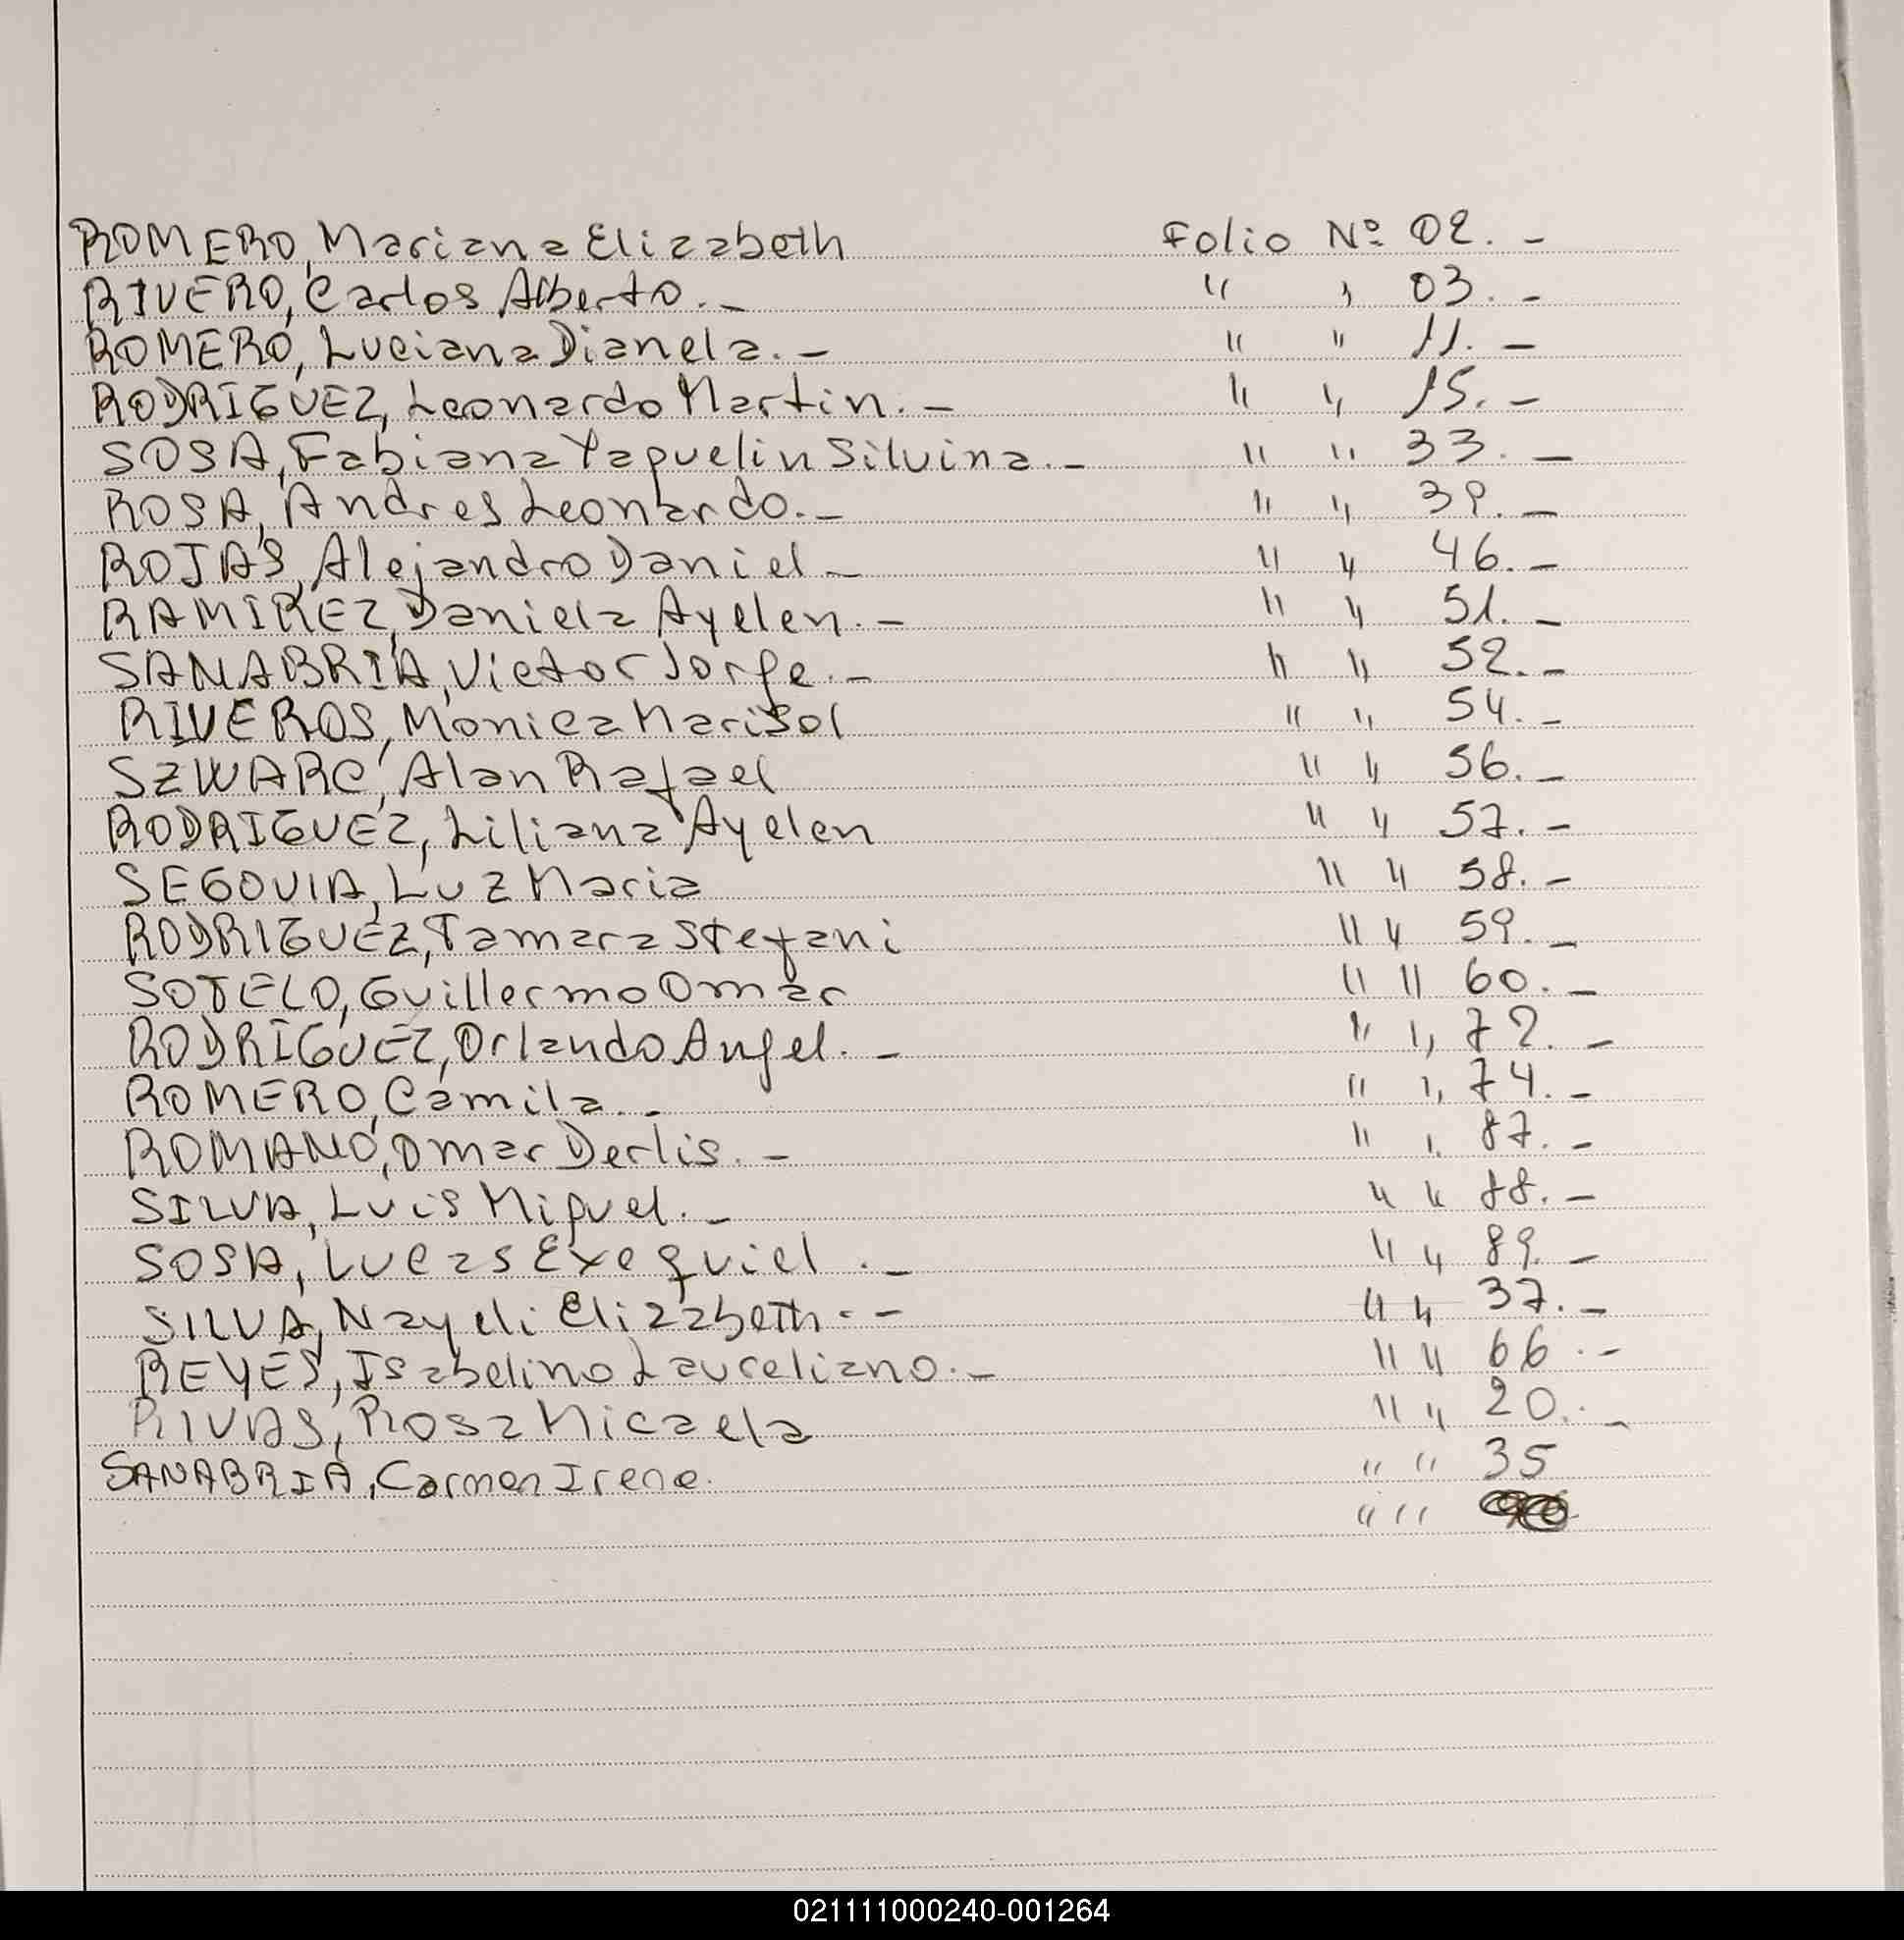 ROMERO, Mariana Elizabeth Folio Nº 02. -
RIVERO, Carlos Alberto. - " , 03. -
ROMERO, Luciana Dianela. - " " 11. -
RODRIGUEZ, Leonardo Martin. - " " 15. -
SOSA, Fabiana Yaquelin Silvina. - " " 33. -
ROSA, Andres Leonardo. - " " 39. -
ROJAS, Alejandro Daniel - " " 46. -
RAMIREZ, Daniela Ayelen. - " " 51. -
SANABRIA, Victor Jorge. - " " 52. -
RIVEROS, Monica Marisol " " 54. -
SZWARC, Alan Rafael " " 56. -
RODRIGUEZ, Liliana Ayelen " " 57. -
SEGOVIA, Luz Maria " " 58. -
RODRIGUEZ, Tamara Stefani " " 59. -
SOTELO, Guillermo Omar " " 60. -
RODRIGUEZ, Orlando Angel. - " " 72. -
ROMERO, Camila. - " " 74. -
ROMANO, Omar Derlis. - " " 87. -
SILVA, Luis Miguel. - " " 88. -
SOSA, Lucas Exequiel . - " " 89. -
SILVA, Nayeli Elizabeth. - " " 37. -
REYES, Isabelino Laureliano. - " " 66 . -
RIVAS, Rosa Micaela " " 20. . -
SANABRIA, Carmen Irene. " " 35
" "
021111000240-001264